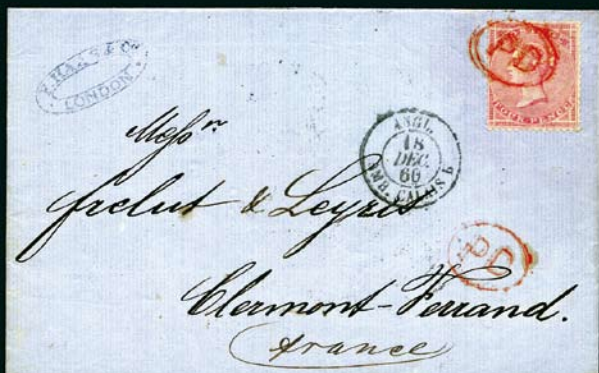 HAAS & Co.
LONDON
PD
FOUR PENCE
ANGL.
18
DEC.
60
AMB. CALAIS
Messrs
frelut & Leyris
PD
Clermont-Ferrand.
France